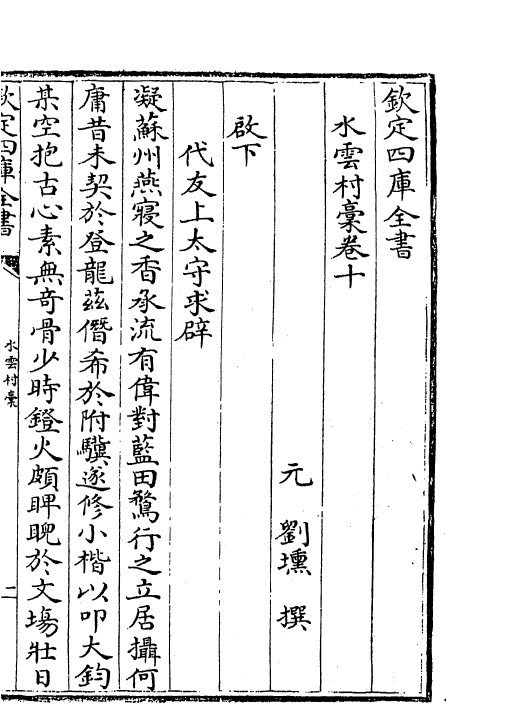 欽定四庫全書
水雲村稾卷十
元 劉壎 撰
啟下
代友上太守求辟
凝蘇州燕寢之香承流有偉對藍田鶩行之立居攝何
庸昔未契於登龍茲僭希於附驥遂修小楷以叩大鈞
某空抱古心素無奇骨少時鐙火頗睥睨於文塲壯日
欽定四庫全書
水雲村稾
二